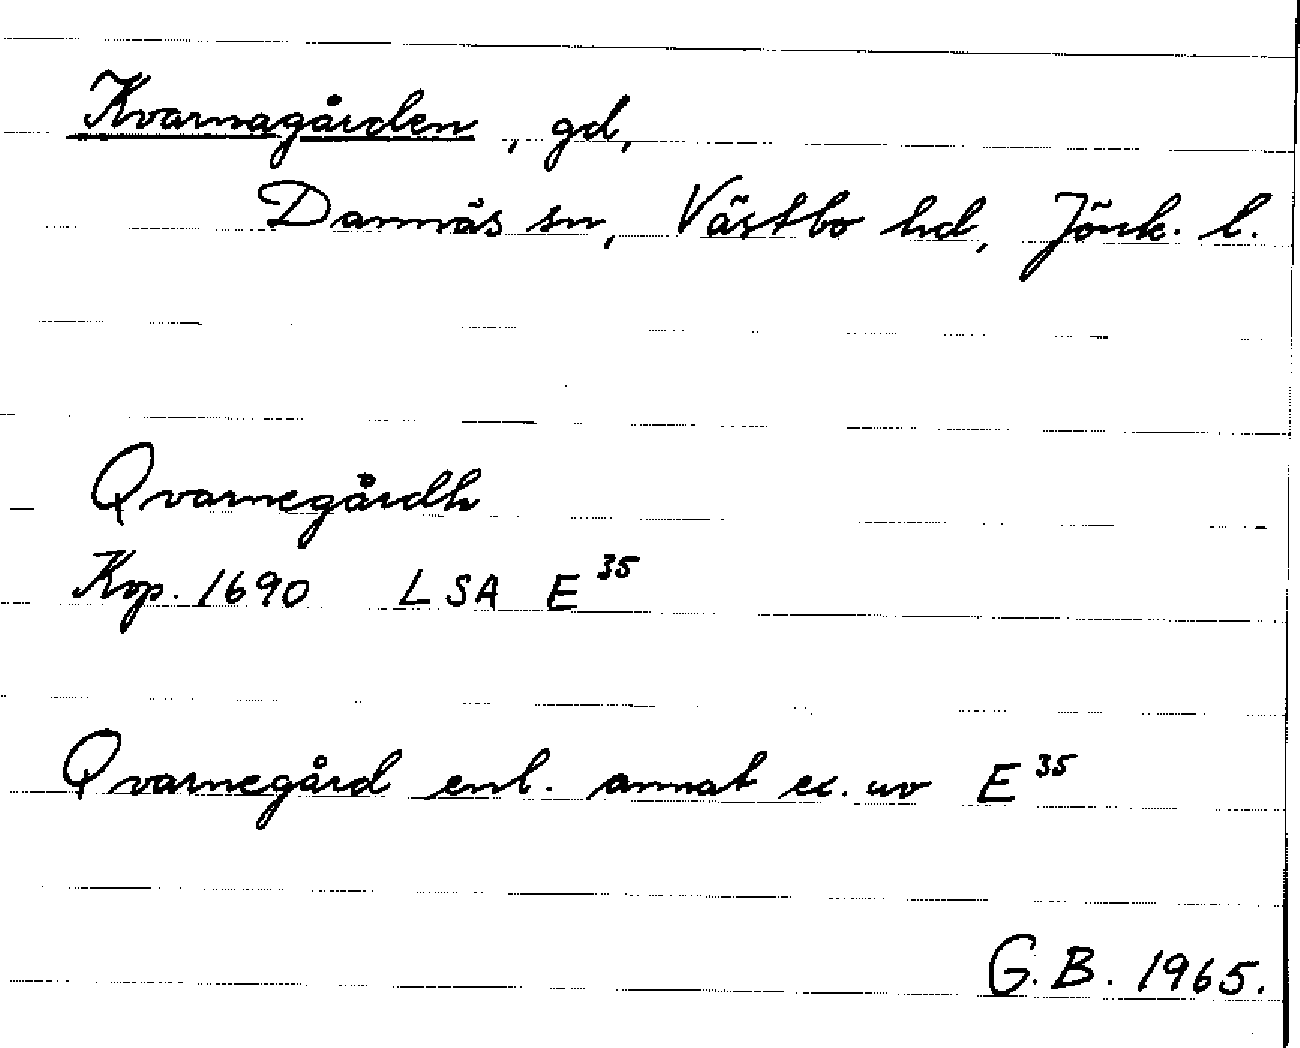 Kvarnagården, gd,
Dannäs sn, Västbo hd, Jönk. l.
Qvarnegårdh
Kop. 1690 LSA E 35
Qvarnegård enl. annat ex. av E 35
G.B. 1965.